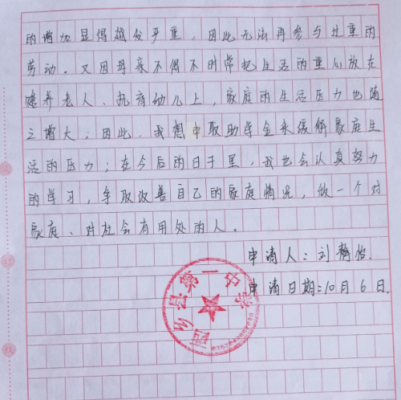 的增加显得越发严重，因此无法再参与过重的
劳动。又因母亲不得不时常把生活的重心放在
赡养老人、抚育幼儿上，家庭的生活压力也随
之增大，因此，我想申取助学金来缓解家庭生
活的压力；在今后的日子里，我也会认真努力
的学习，争取改善自己的家庭情况，做一个对
家庭、对社会有用处的人。
申请人：刘静怡.
申请日期：10月6日.
县第一中学